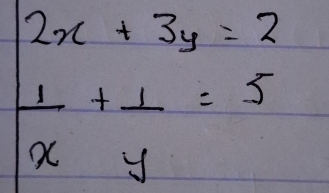 2x + 3y = 2
1/x + 1/y = 5